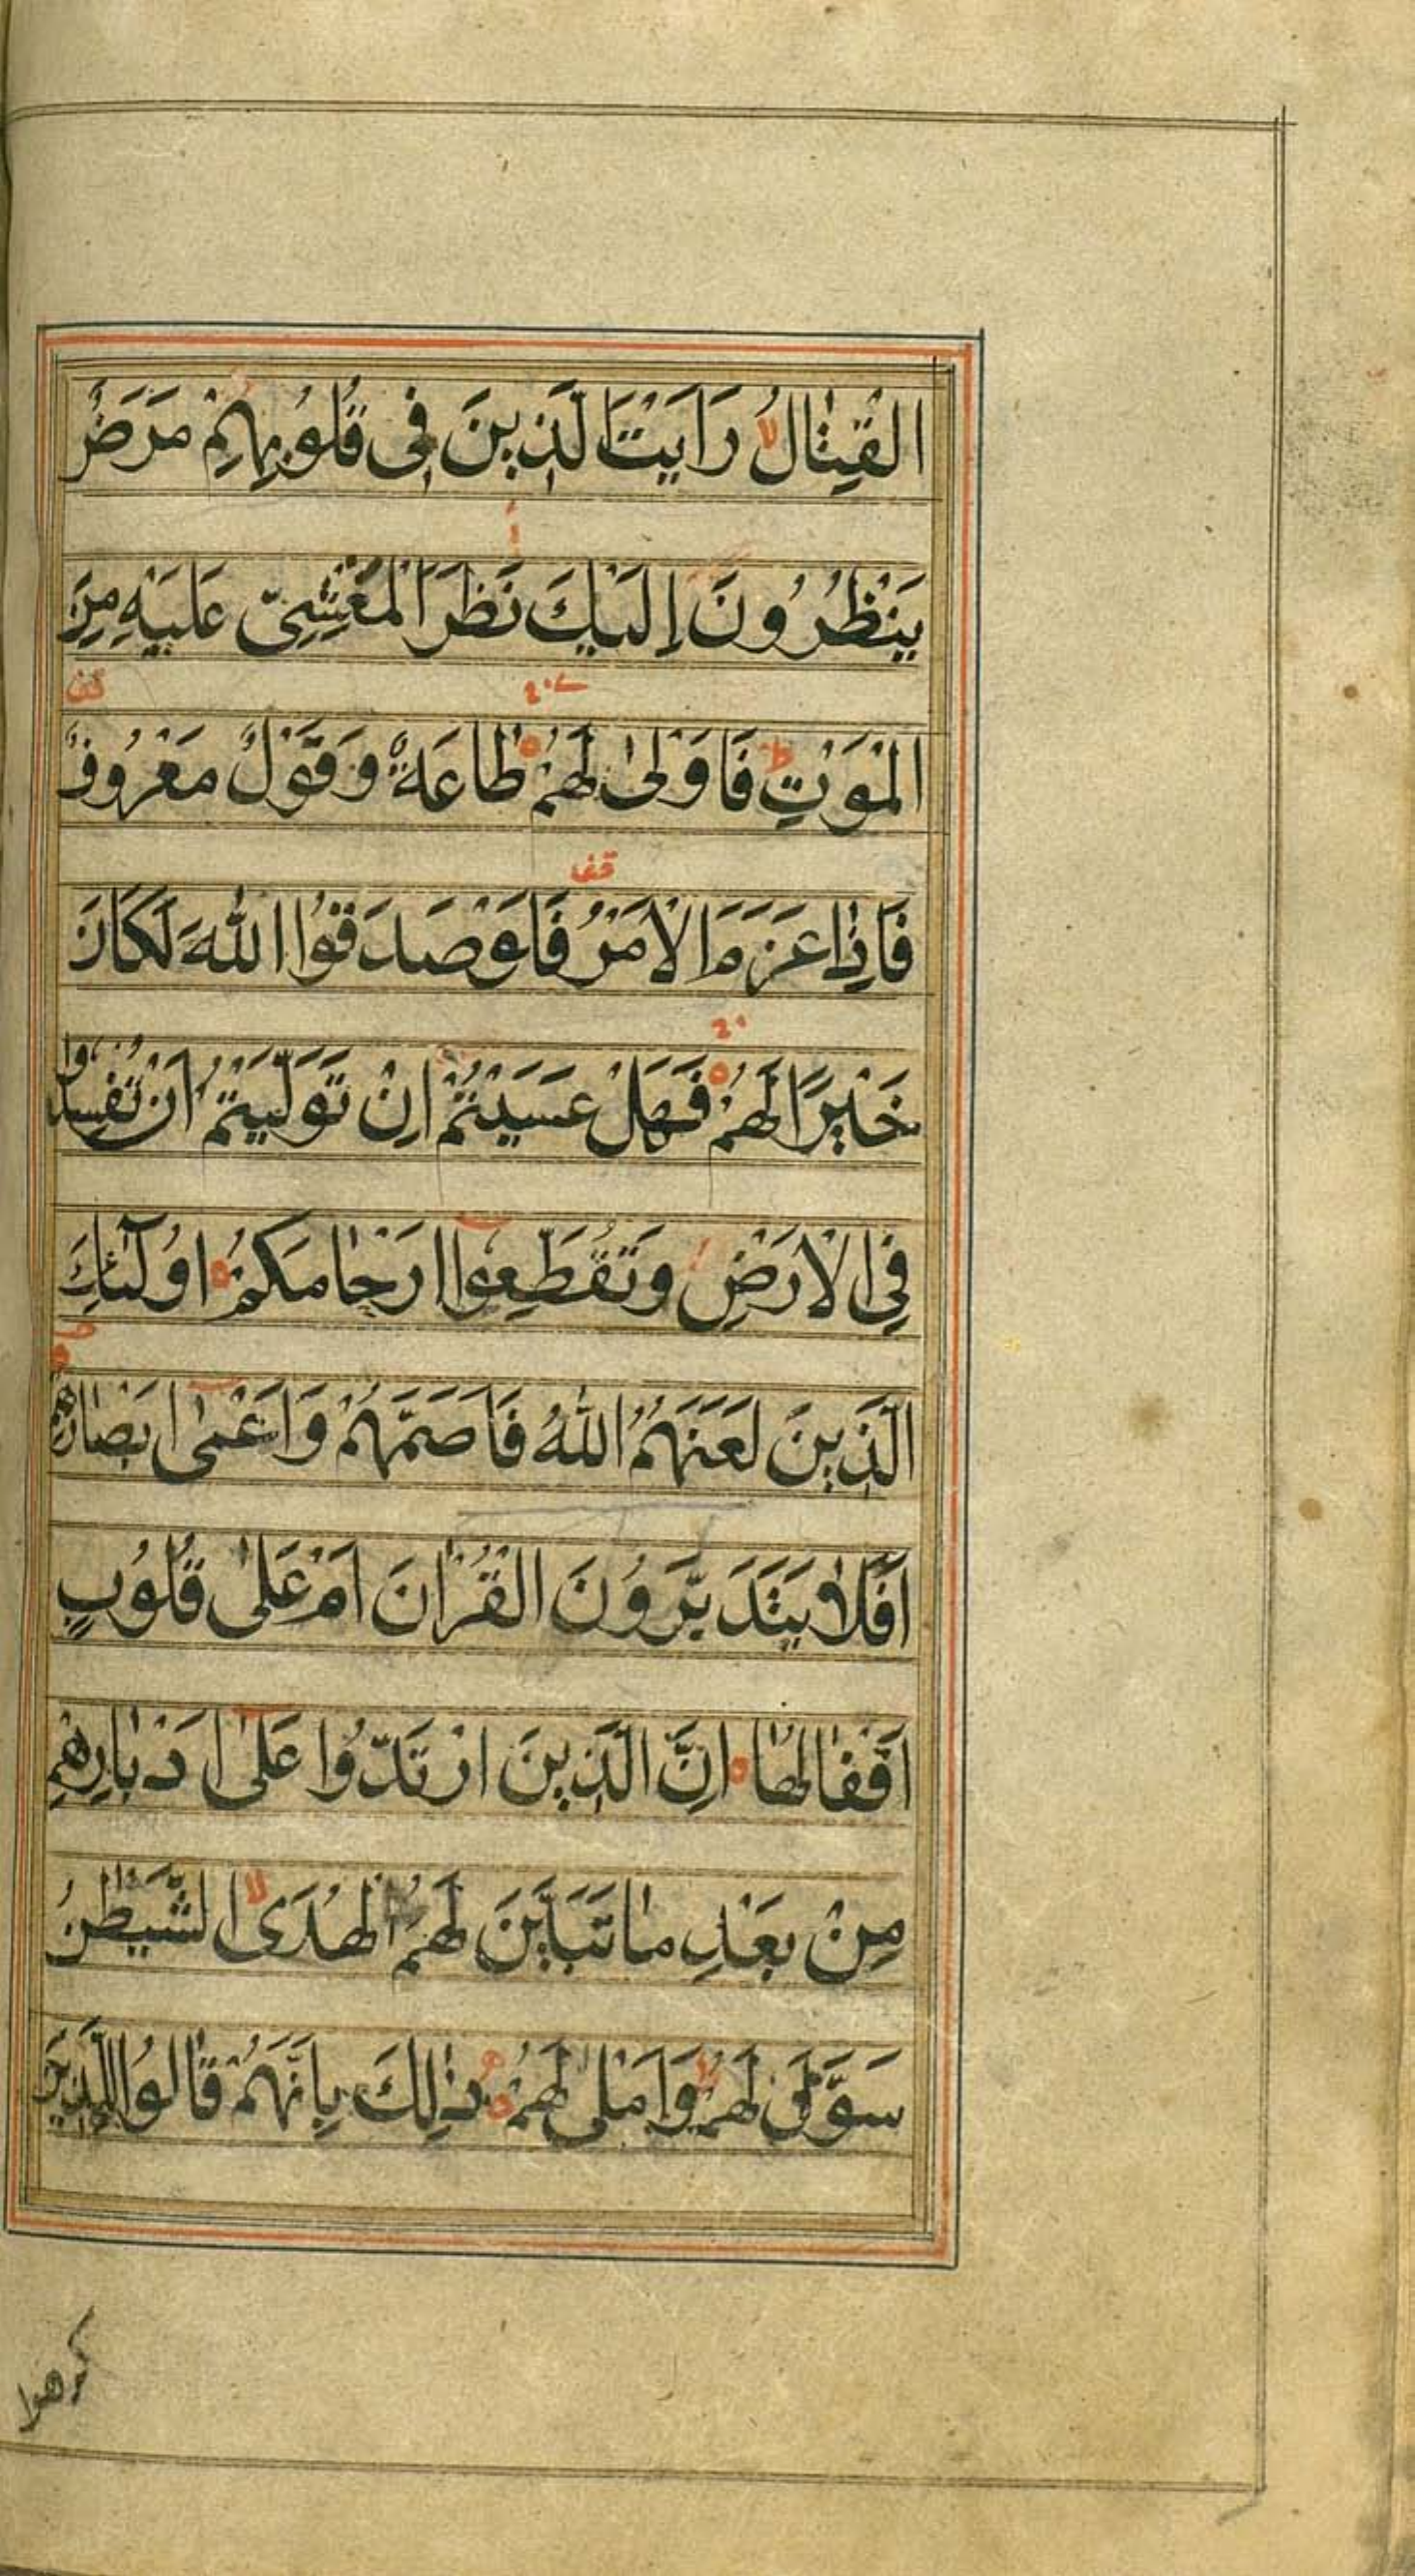 الْقِتٰالُ رَاَيْتَ الَّذِينَ فِى قُلُوبِهِمْ مَرَضٌ
يَنْظُرُونَ اِلَيْكَ نَظَرَ الْمَغْشِىِّ عَلَيْهِ مِنَ
الْمَوْتِ فَاَوْلىٰ لَهُمْ طٰاعَةٌ وَقَوْلٌ مَعْرُوفٌ
قف
فَاِذٰا عَزَمَ الْاَمْرُ فَلَوْ صَدَقُوا اللّٰهَ لَكَانَ
خَيْرًا لَهُمْ فَهَلْ عَسَيْتُمْ اِنْ تَوَلَّيْتُمْ اَنْ تُفْسِدُوا
فِى الْاَرْضِ وَتُقَطِّعُوا اَرْحٰامَكُمْ اُولٰٓئِكَ
الَّذِينَ لَعَنَهُمُ اللّٰهُ فَاَصَمَّهُمْ وَاَعْمىٰ اَبْصٰارَهُمْ
اَفَلٰا يَتَدَبَّرُونَ الْقُرْاٰنَ اَمْ عَلىٰ قُلُوبٍ
اَقْفٰالُهٰا اِنَّ الَّذِينَ ارْتَدُّوا عَلىٰ اَدْبٰارِهِمْ
مِنْ بَعْدِ مٰا تَبَيَّنَ لَهُمُ الْهُدَى الشَّيْطٰنُ
سَوَّلَ لَهُمْ وَاَمْلىٰ لَهُمْ ذٰلِكَ بِاَنَّهُمْ قٰالُوا لِلَّذِينَ
كرهوا